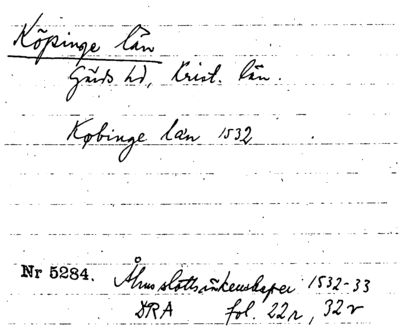 Köpinge län
Gärds hd, Krist. län.
Købinge län 1532
Nr 5284. Åhus slottsräkenskaper 1532-33
DRA fol. 22r, 32v